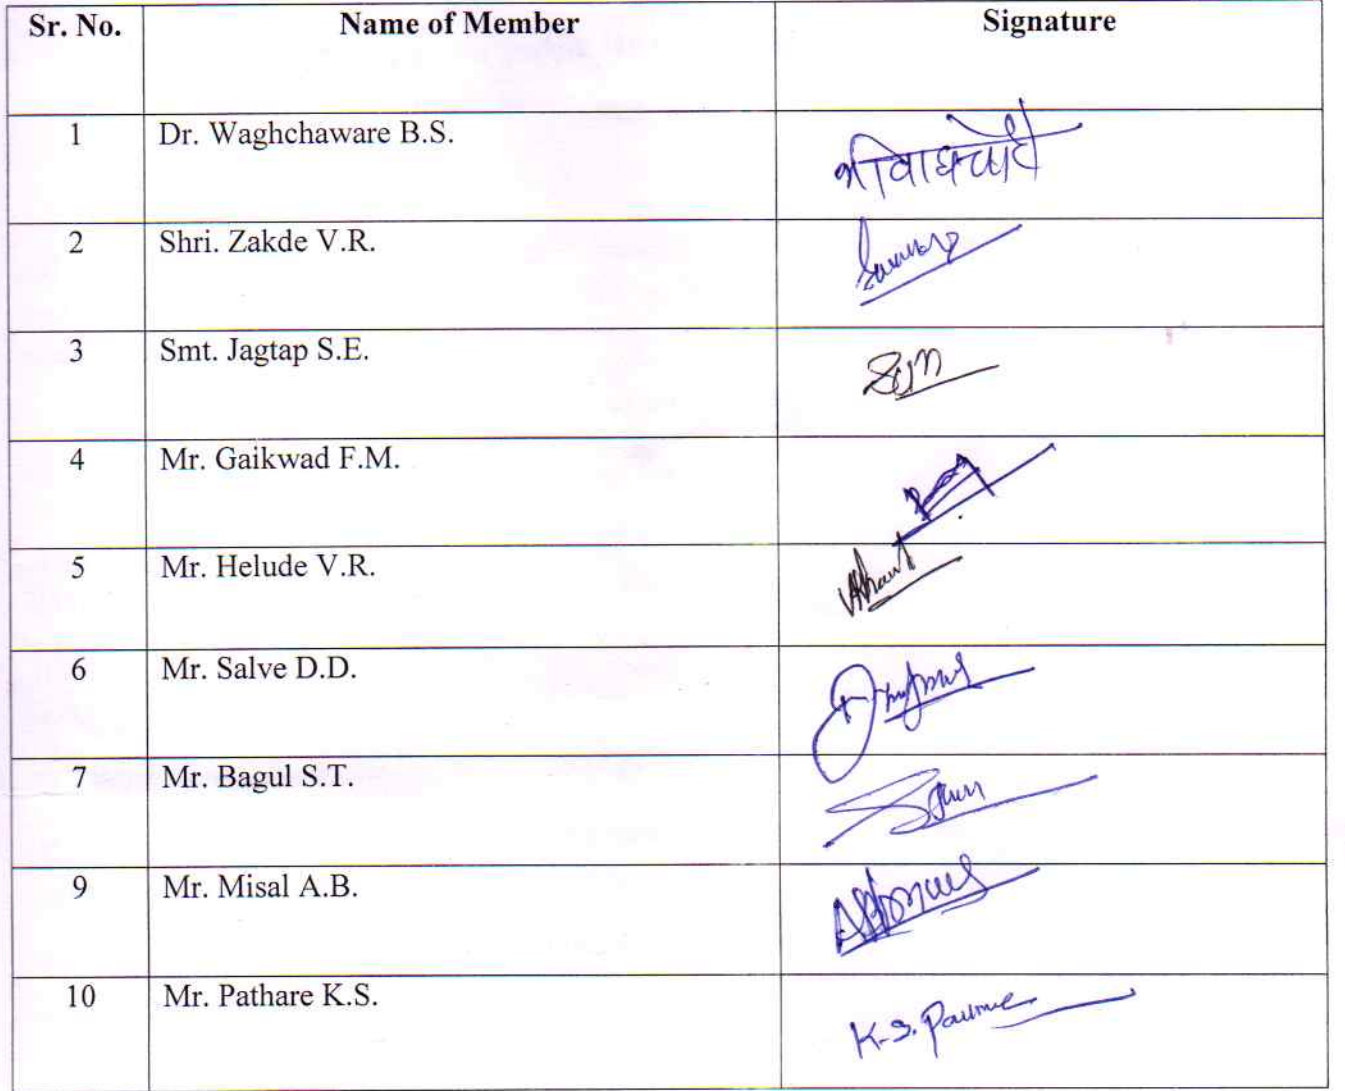 Sr. No. Name of Member Signature
1 Dr. Waghchaware B.S.
2 Shri. Zakde V.R.
3 Smt. Jagtap S.E.
4 Mr. Gaikwad F.M.
5 Mr. Helude V.R.
6 Mr. Salve D.D.
7 Mr. Bagul S.T.
9 Mr. Misal A.B.
10 Mr. Pathare K.S. K.S.